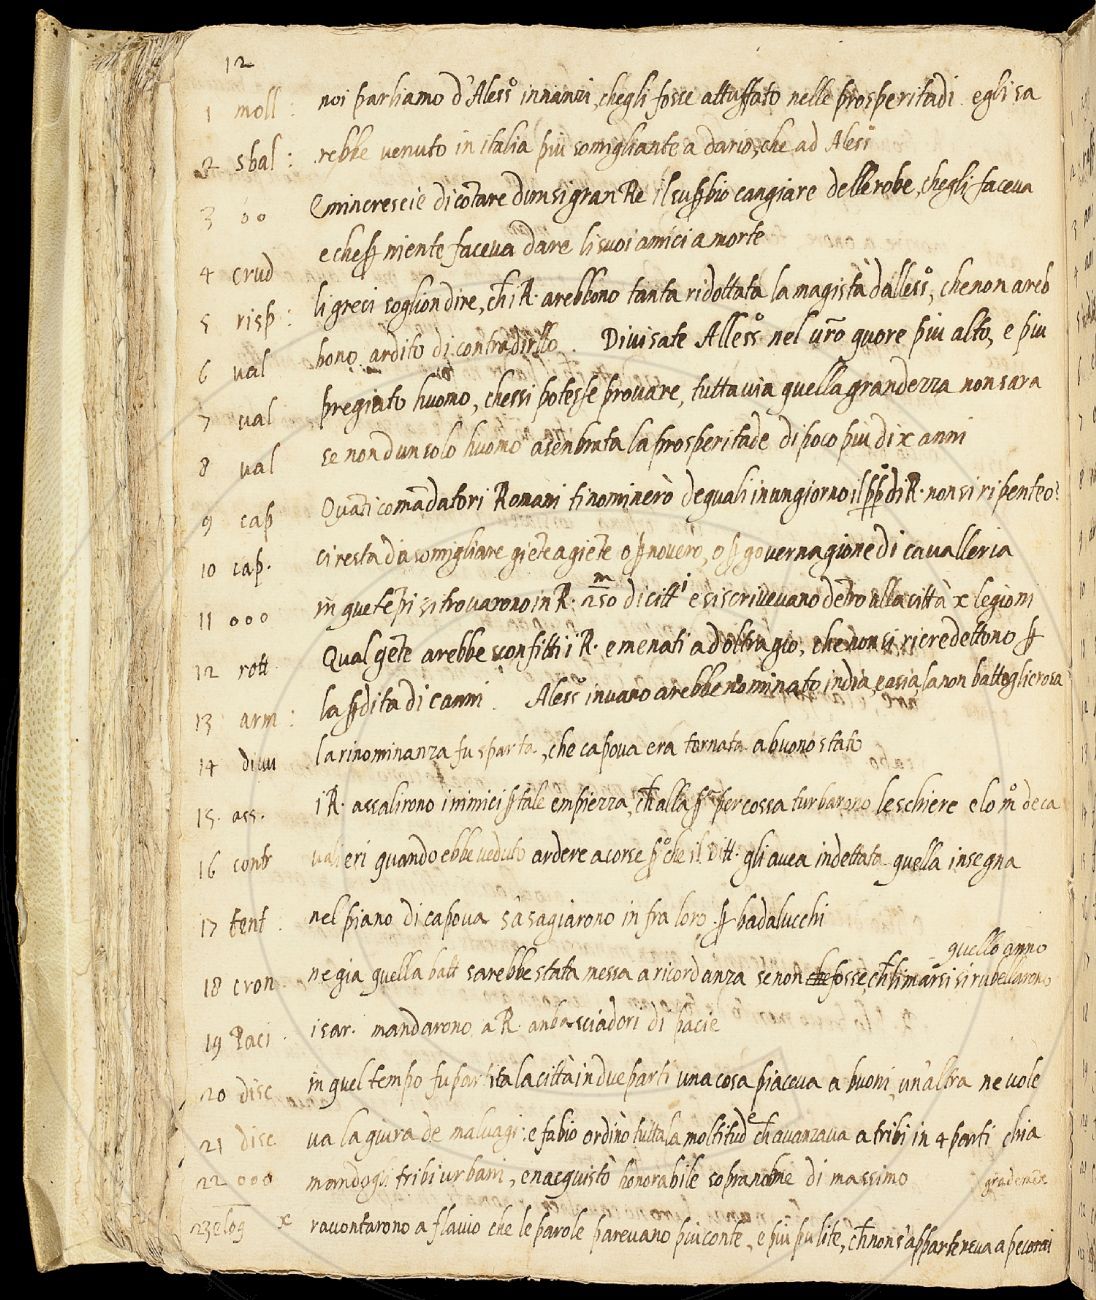 12
1 moll. noi parliamo d'Aless.o innanzi, chegli fosse attuffato nelle prosperitadi eglisa
2 sbal: rebbe venuto in italia piu somigliante a dario, che ad Aless.o
3 oo Emincresciè dicōtare dunsigran Re ilsuꝑbio cangiare dellerobe, chegli faceva
e cheꝑ niente faceva dare lisuoi amici a morte
4 crud
5 risp: ligreci sogliondire, ch̄ i R. arebbono tanta ridottata la magista d'alless.o, chenon areb
6 val bono ardito di contradirllo. Divisate Alless.o nel vr̄o quore piu alto, e piu
7 val pregiato huono, chessi potesse provare, tuttavia quella grandezza nonsara
8 val se non dunsolo huomo asenbrata la prosperitade di poco piu di x anni
9 cap Quāti comādatori Romani tinominerò dequali inungiorno il di R. non si ripente o?
10 cap. ciresta da somigliare giēte agiēte o ꝑ novero, o ꝑ governagione di cavalleria
11 ooo in que tēpi si trovarono in R. 250 m di citt.i e siscrivevano dētro alla città x legioni
12 rott Qual gēte arebbe sconfitti i R. e menati ad oltragio, che non si ricredettono ꝑ
13 arm: la ꝑdita di canni. Aless.o invano arebbe nominato india, e asia, la non battaglierosa
14 divu la rinominanza fu sparta, che capova era tornata a buono stato
15. ass. i R. assalirono inimici ꝑ tale empiezza, ch̄ alla percossa turbarono le schiere e lo m.o de ca
16 contr valieri quando ebbe veduto ardere acorse ꝑo che il Ditt. gli avea indettata quella insegna
17 tent: nel piano di capova sāsagiarono in fra loro ꝑ badalucchi
quello anno
18 cron. ne gia quella batt sarebbe stata messa a ricordanza senon che fosse ch̄ li marsi si rubellarono
19 Paci. i sar. mandarono a R. anbasciadori di pacie
20 disc in quel tempo fu partita la città in due parti una cosa piaceva a buoni, un'altra ne vole
21 disc va la gura de malvagi: e fabio ordinò tutta la moltitude ch̄ avanzava a tribi in 4 parti chia
22 ooo mandogli tribi urbani, e nacquistò honorabile sopranome di massimo
23 elog x raccontarono a flavio che le parole parevano piu conte, e piu pulite, ch̄ non s'apparteneva a pecorai